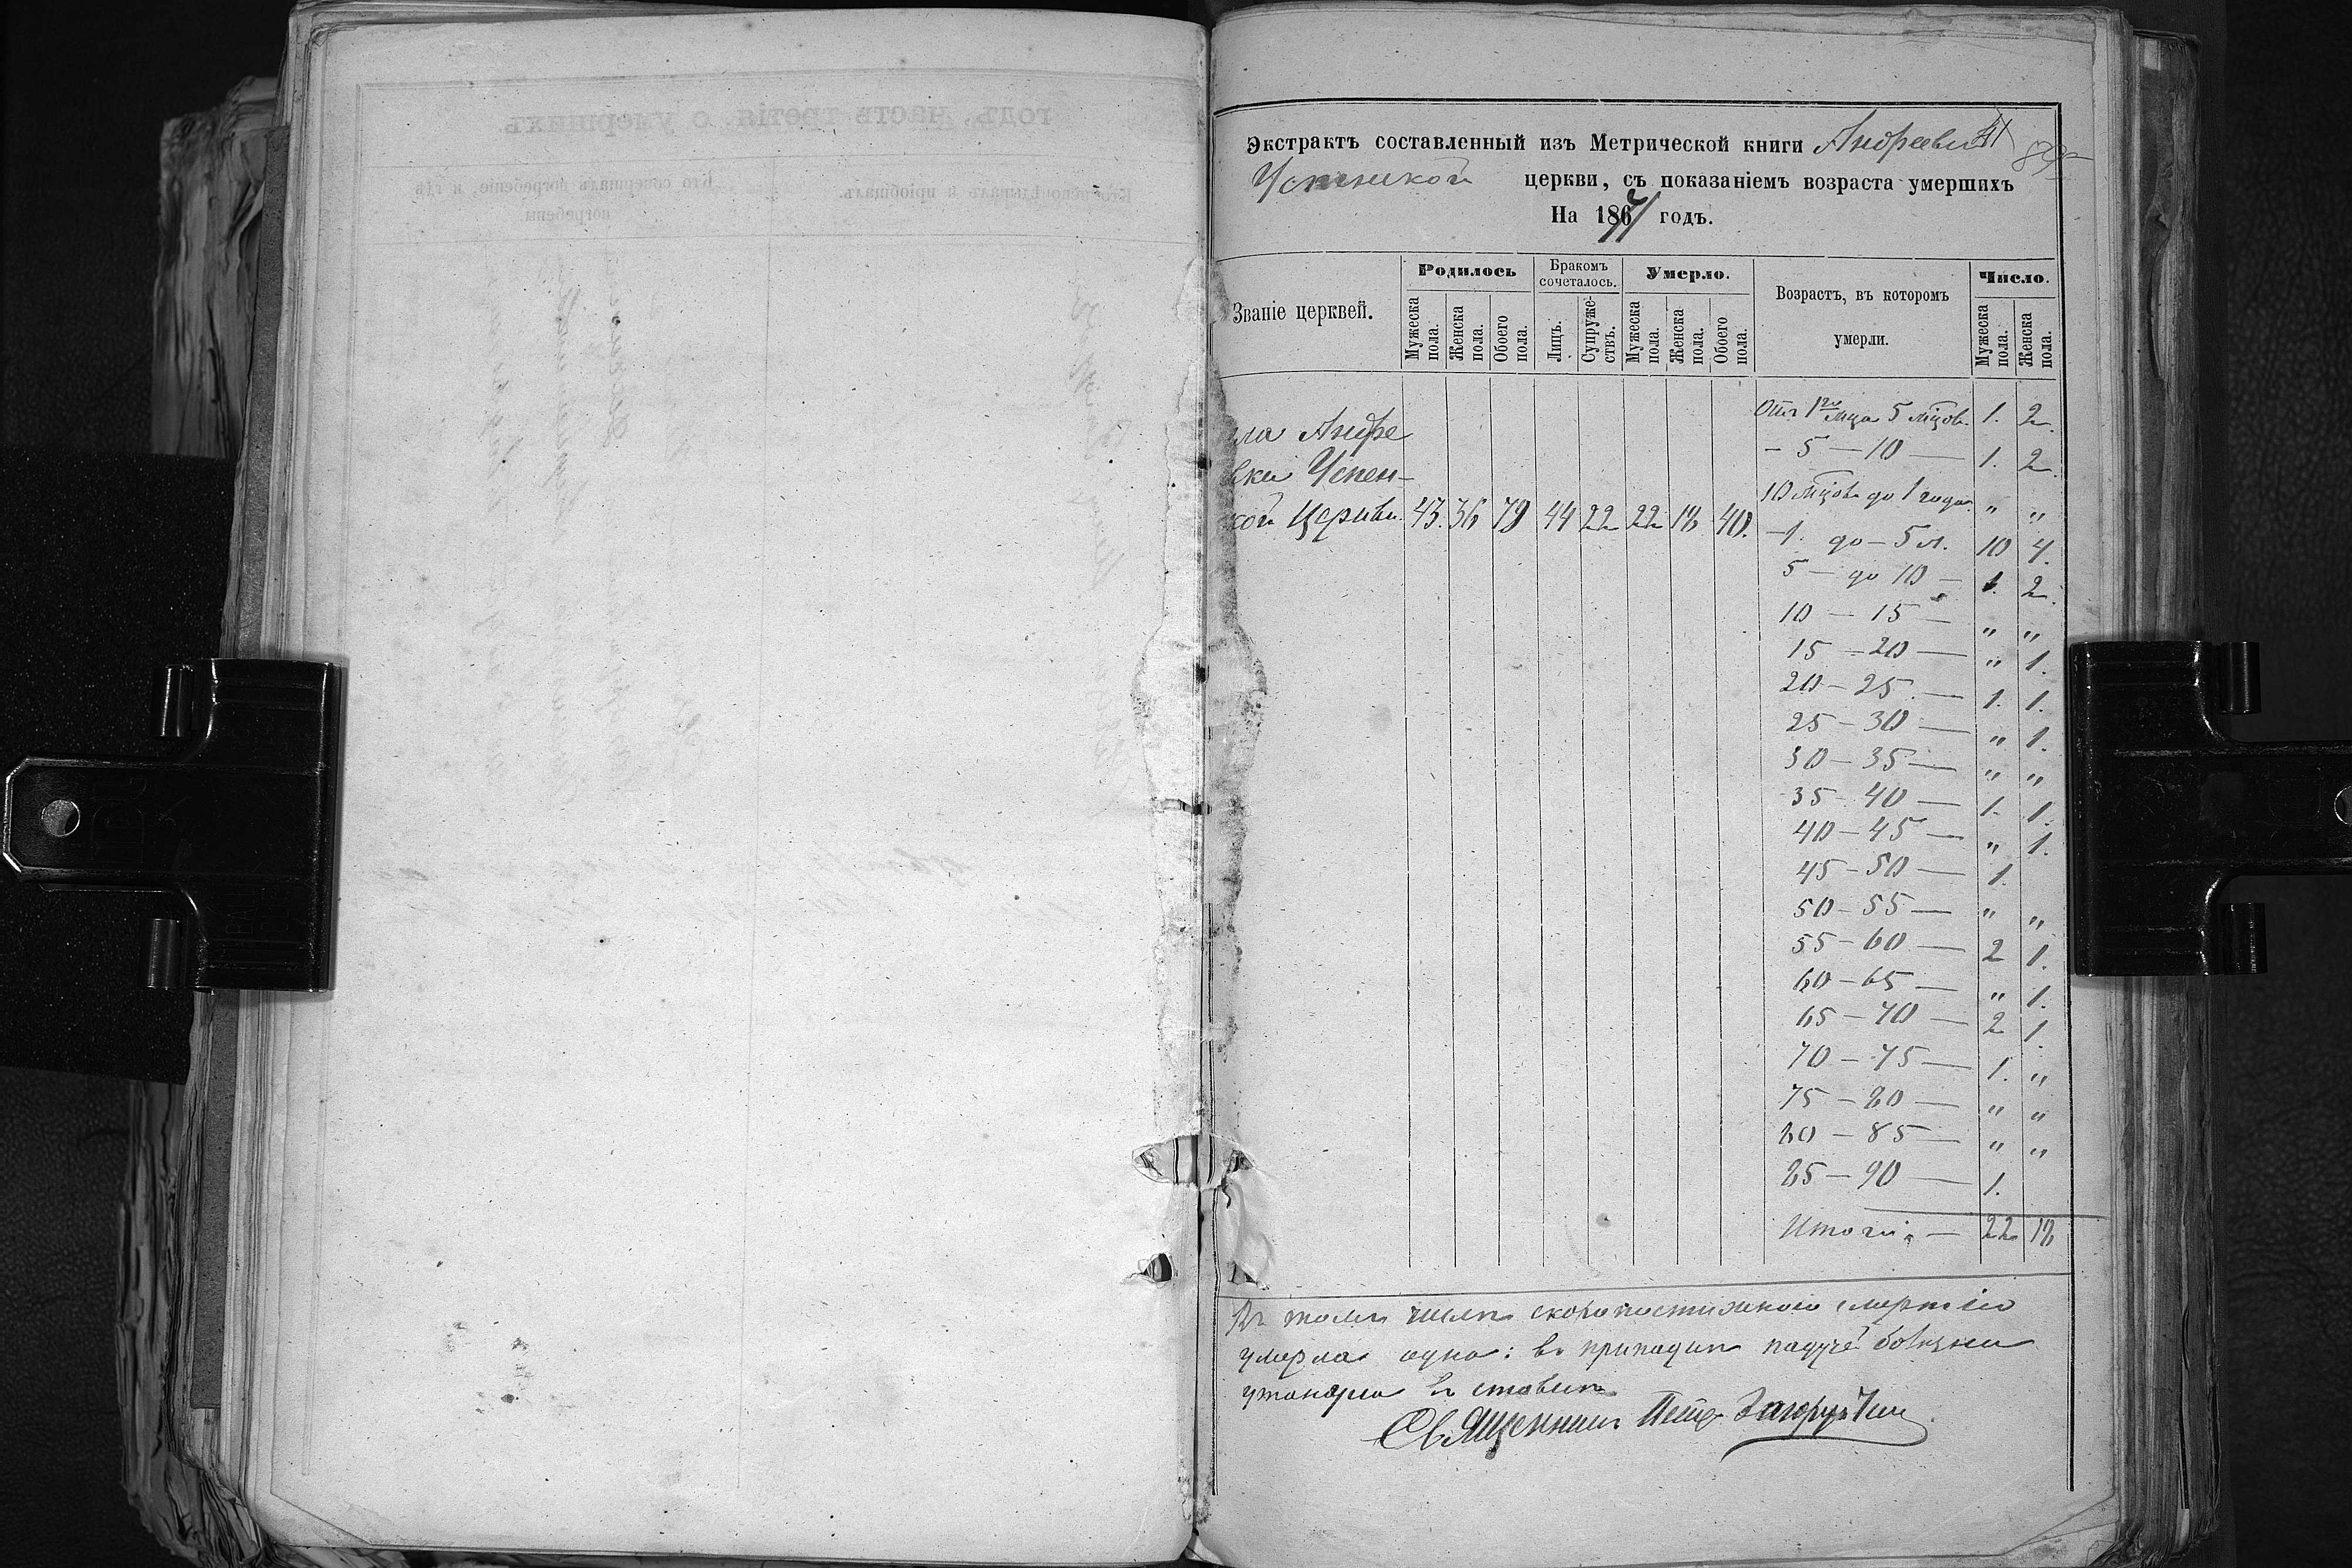 Экстрактъ составленный изъ Метрической книги Андреевской
Успенской церкви, съ показаніемъ возраста умершихъ
На 1871 годъ.
Званіе церквей.
Родилось
Мужеска пола.
Женска пола.
Обоего пола.
Бракомъ сочеталось.
Лицъ.
Супружествъ.
Умерло.
Мужеска пола.
Женска пола.
Обоего пола.
Возрастъ, въ которомъ
умерли.
Число.
Мужеска пола.
Женска пола.
ла Андре
вки Успен-
кой Церкви. 43. 36 79 44 22 22 18 40.
Отъ 1го мца 5 мцов. 1. 2.
- 5 — 10 — 1. 2.
10 мцовъ до 1 года. " "
— 1. до — 5 л. 10 4.
5 — до 10 — 1. 2.
10 — 15 — " "
15 — 20 — " 1.
20 — 25 — 1. 1.
25 — 30 — " 1.
30 — 35 — " "
35 - 40 — 1. 1.
40 — 45 — " 1.
45 - 50 — 1.
50 - 55 — " "
55 - 60 — 2 1.
60 - 65 — " 1.
65 — 70 — 2 1.
70 — 75 — 1. "
75 — 80 — " "
80 — 85 — " "
85 — 90 — 1.
Итого: — 22 18
Въ томъ числѣ скоропостижною смертію
умерла одна: въ припадкѣ падучей болѣзни
утонула въ ставѣ
Священникъ Петръ
годъ, часть третія, о умершихъ.
Кто исповѣдывалъ и пріобщалъ.
Кто совершалъ погребеніе, и гдѣ
погребены